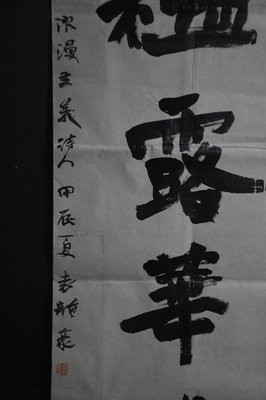 檻露華
浪漫主義詩人甲辰夏袁